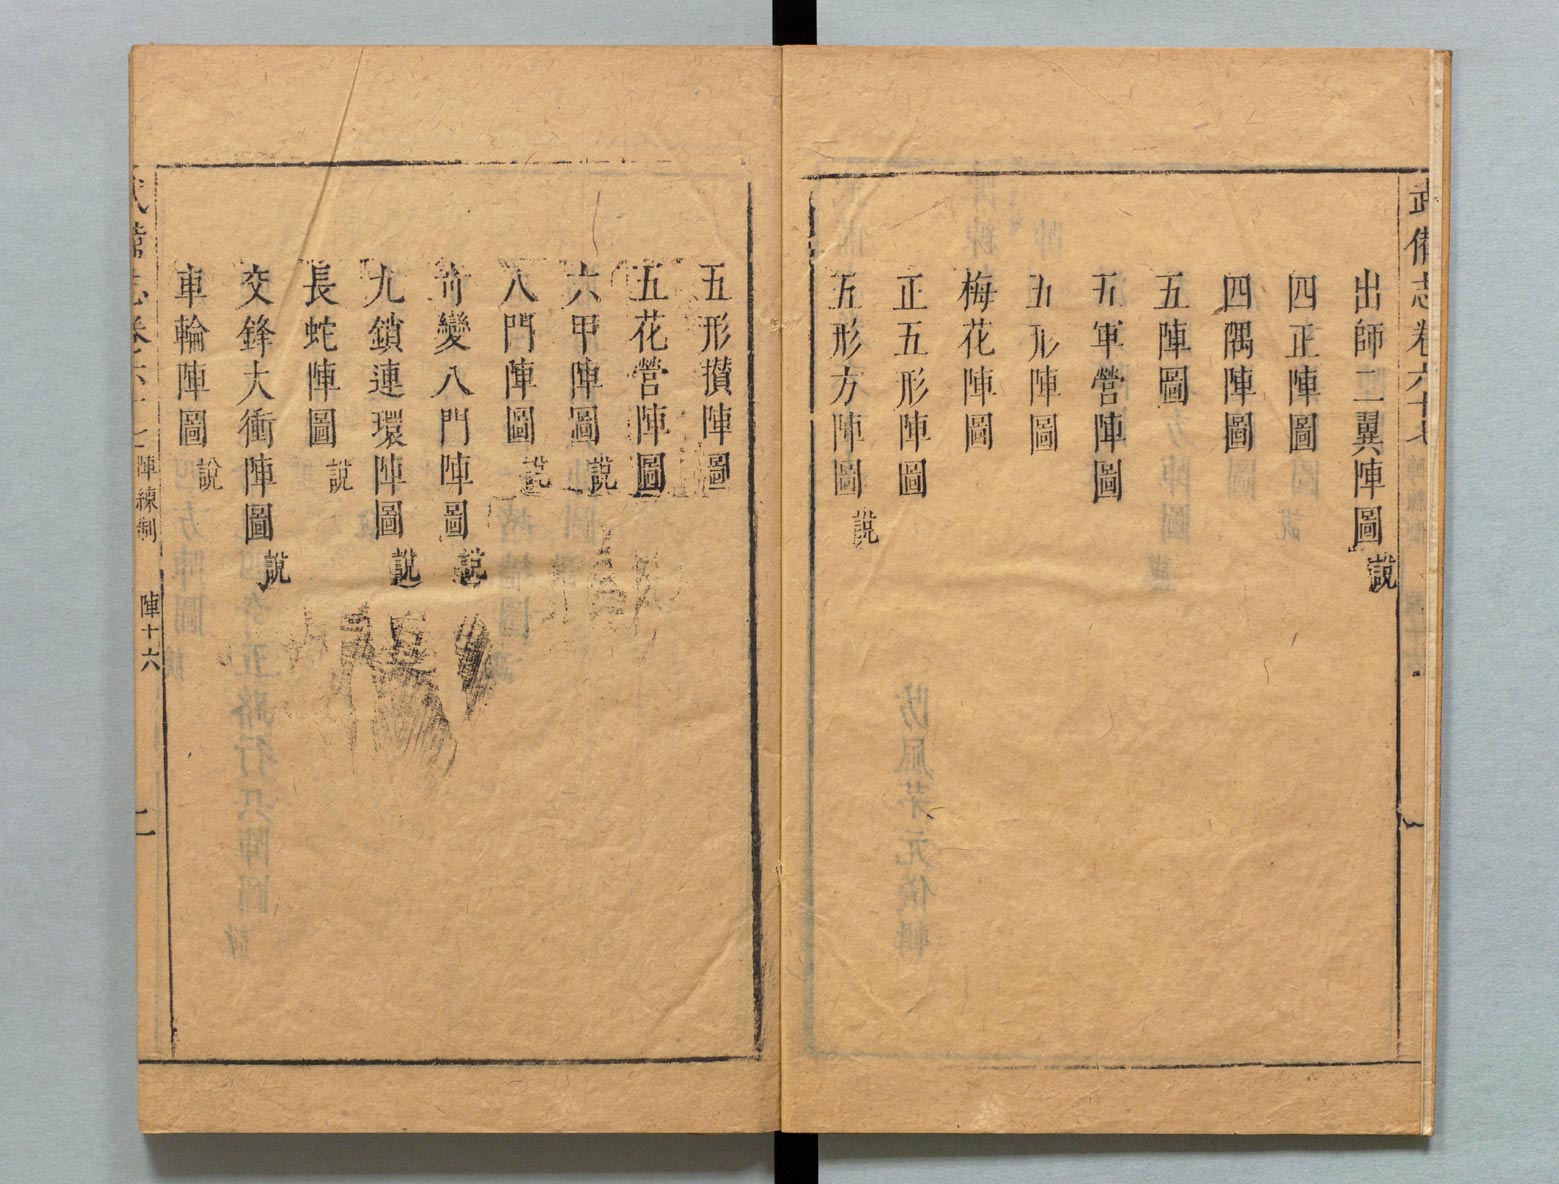 武備志卷六十七
出師二翼陣圖說
四正陣圖
四隅陣圖
五陣圖
五軍營陣圖
五形陣圖
梅花陣圖
正五形陣圖
五形方陣圖說
五形攢陣圖
五花營陣圖
六甲陣圖說
八門陣圖說
奇變八門陣圖說
九鎖連環陣圖說
長蛇陣圖說
交鋒大衝陣圖說
車輪陣圖說
武備志卷六十七 陣練制 陣十六 二